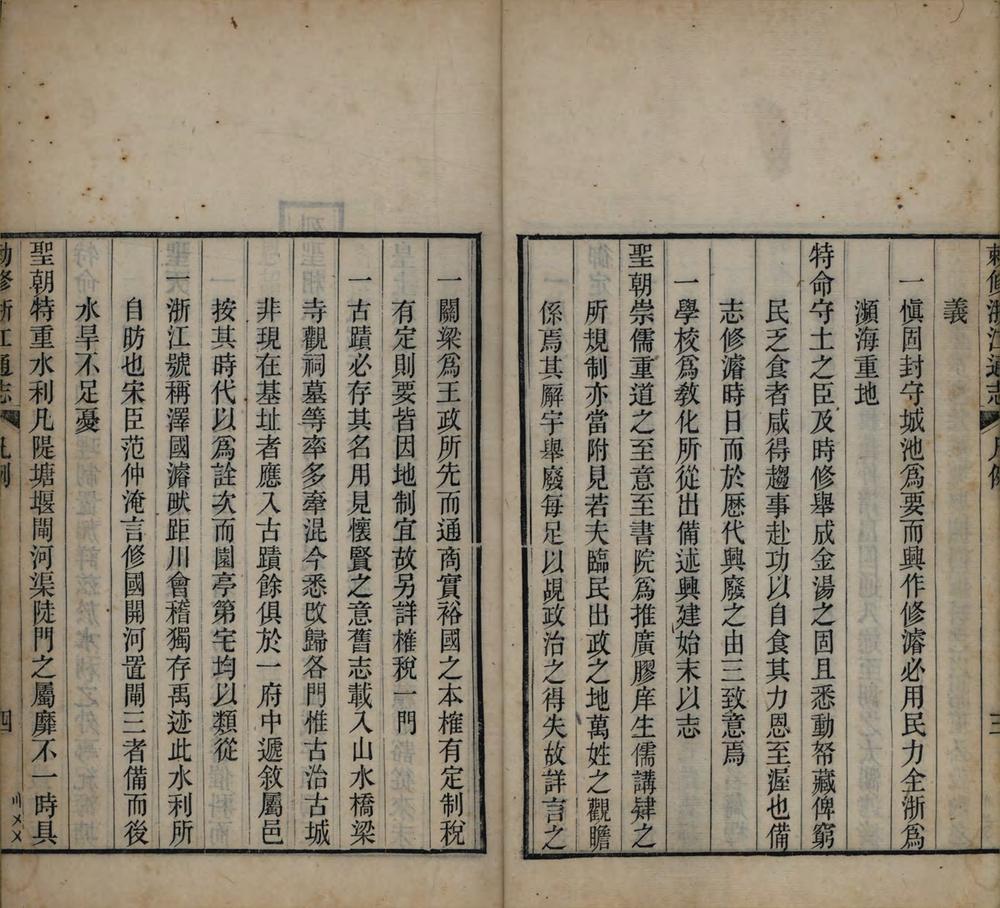 義
一愼固封守城池爲要而興作修濬必用民力全浙爲
瀕海重地
特命守土之臣及時修舉成金湯之固且悉動帑藏俾窮
民乏食者咸得趨事赴功以自食其力恩至渥也備
志修濬時日而於歷代興廢之由三致意焉
一學校爲敎化所從出備述興建始末以志
聖朝崇儒重道之至意至書院爲推廣膠庠生儒講肄之
所規制亦當附見若夫臨民出政之地萬姓之觀瞻
係焉其廨宇舉廢每足以覘政治之得失故詳言之
一關梁爲王政所先而通商實裕國之本榷有定制稅
有定則要皆因地制宜故另詳榷稅一門
一古蹟必存其名用見懷賢之意舊志載入山水橋梁
寺觀祠墓等率多牽混今悉改歸各門惟古治古城
非現在基址者應入古蹟餘俱於一府中遞敘屬邑
按其時代以爲詮次而園亭第宅均以類從
一浙江號稱澤國濬畎距川會稽獨存禹迹此水利所
自昉也宋臣范仲淹言修國開河置閘三者備而後
水旱不足憂
聖朝特重水利凡隄塘堰閘河渠陡門之屬靡不一時具
勅修浙江通志 凡例 四